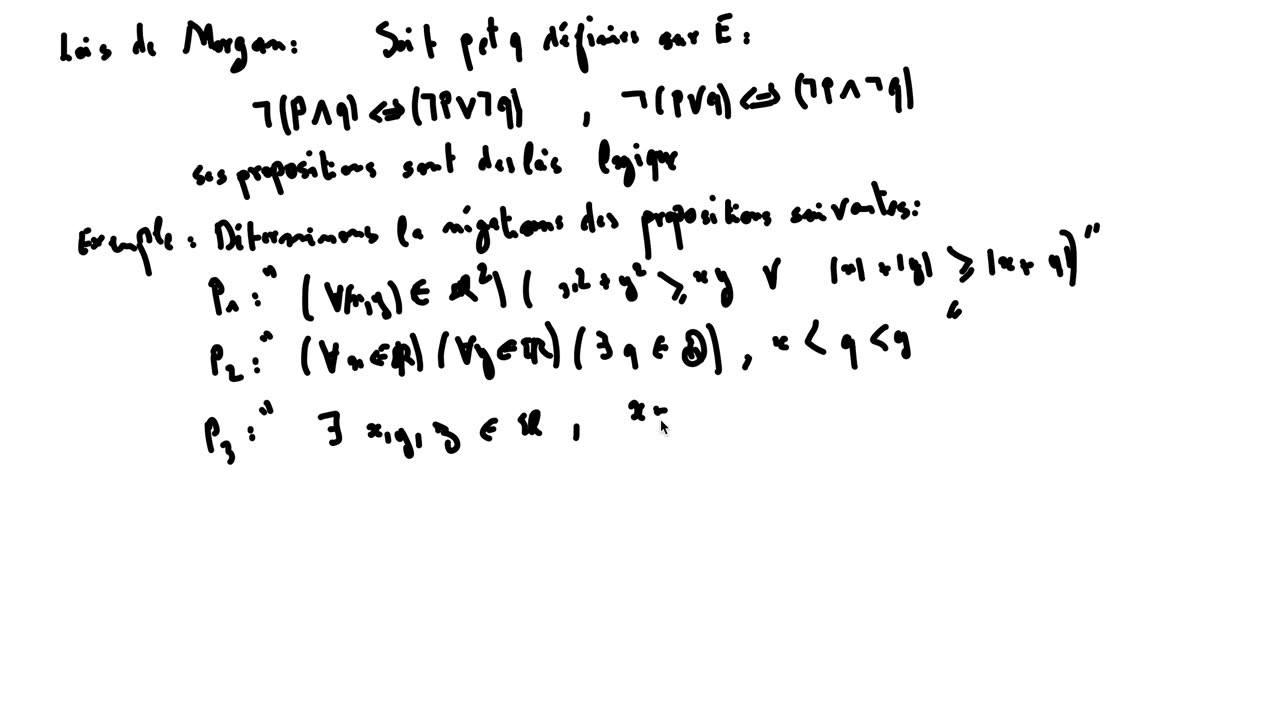 Lois de Morgan: Soit p et q définies sur E:
¬(P∧q) ⇔ (¬P∨¬q) , ¬(P∨q) ⇔ (¬P∧¬q)
ses propositions sont des lois logique
Exemple: Déterminons la négations des propositions suivantes:
P₁: " (∀(x,y) ∈ ℝ²) ( x² + y² ⩾ xy ∨ |x| + |y| ⩾ |x + y|) "
P₂: " (∀x∈ℝ) (∀y∈ℝ) (∃ q ∈ ℚ) , x < q < y "
P₃: " ∃ x,y,z ∈ ℝ , x -